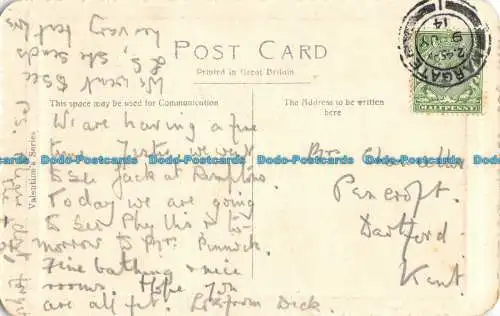 POST CARD
Printed in Great Britain
This space may be used for Communication
The Address to be written
here
MARGATE
2.45 PM
9 JY
14
HALFPENNY
Valentine's Series
We are having a fine
time. we went
to see Jack at
Today we are going
to see Phyllis & to-
morrow to Mrs.
Fine bathing & nice
rooms. Hope you
are all fit. Dick.
Mrs
Pencroft.
Dartford
Kent
We went to see
she sends
best love
P.S.
Dodo-Postcards Dodo-Postcards Dodo-Postcards Dodo-Postcards Dodo-Postcards